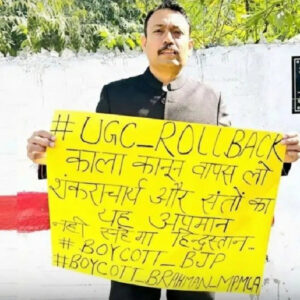 #UGC_ROLLBACK
काला कानून वापस लो
शंकराचार्य और संतों का
यह अपमान
नहीं सहेगा हिन्दुस्तान-
#BOYCOTT_BJP
#BOYCOTT_BRAHMAN_MPMLA